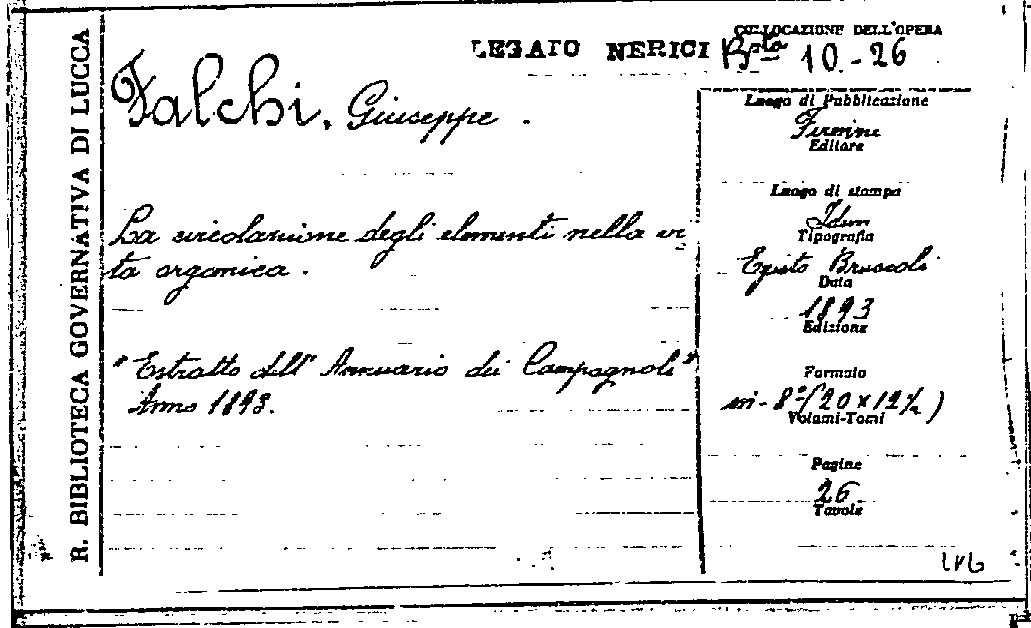 R. BIBLIOTECA GOVERNATIVA DI LUCCA
LEGATO NERICI
COLLOCAZIONE DELL'OPERA
Bsta 10.-26
Falchi, Giuseppe.
La circolazione degli elementi nella vi
ta organica.
"Estratto dell'"Annuario dei Campagnoli"
Anno 1893.
Luogo di Pubblicazione
Firenze
Editore
Luogo di stampa
Idem
Tipografia
Egisto Bruscoli
Data
1893
Edizione
Formato
in-8º (20 x 12½)
Volumi-Tomi
Pagine
26
Tavole